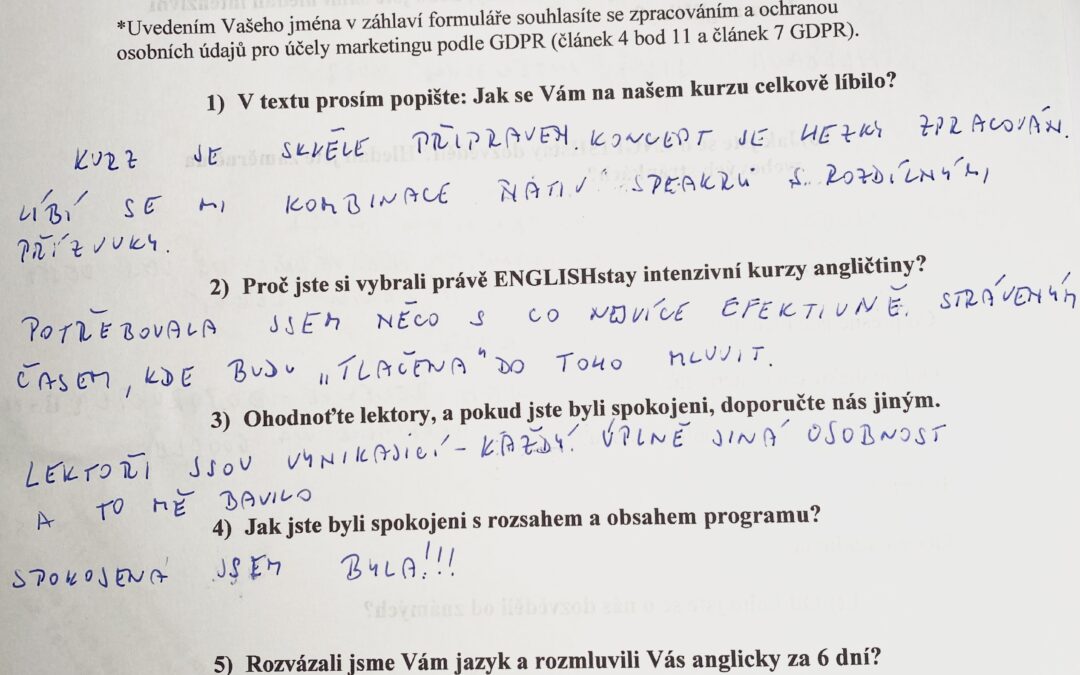 *Uvedením Vašeho jména v záhlaví formuláře souhlasíte se zpracováním a ochranou
osobních údajů pro účely marketingu podle GDPR (článek 4 bod 11 a článek 7 GDPR).
1) V textu prosím popište: Jak se Vám na našem kurzu celkově líbilo?
KURZ JE SKVĚLE PŘIPRAVEN KONCEPT JE HEZKY ZPRACOVÁN.
LÍBÍ SE MI KOMBINACE NÁTIV SPEAKRŮ S ROZDÍLNÝMI
PŘÍZVUKY.
2) Proč jste si vybrali právě ENGLISHstay intenzivní kurzy angličtiny?
POTŘEBOVALA JSEM NĚCO S CO NEJVÍCE EFEKTIVNĚ STRÁVENÝM
ČASEM, KDE BUDU „TLAČENA" DO TOHO MLUVIT.
3) Ohodnoťte lektory, a pokud jste byli spokojeni, doporučte nás jiným.
LEKTOŘI JSOU VYNIKAJÍCÍ - KAŽDÝ ÚPLNĚ JINÁ OSOBNOST
A TO MĚ BAVILO
4) Jak jste byli spokojeni s rozsahem a obsahem programu?
SPOKOJENÁ JSEM BYLA!!!
5) Rozvázali jsme Vám jazyk a rozmluvili Vás anglicky za 6 dní?